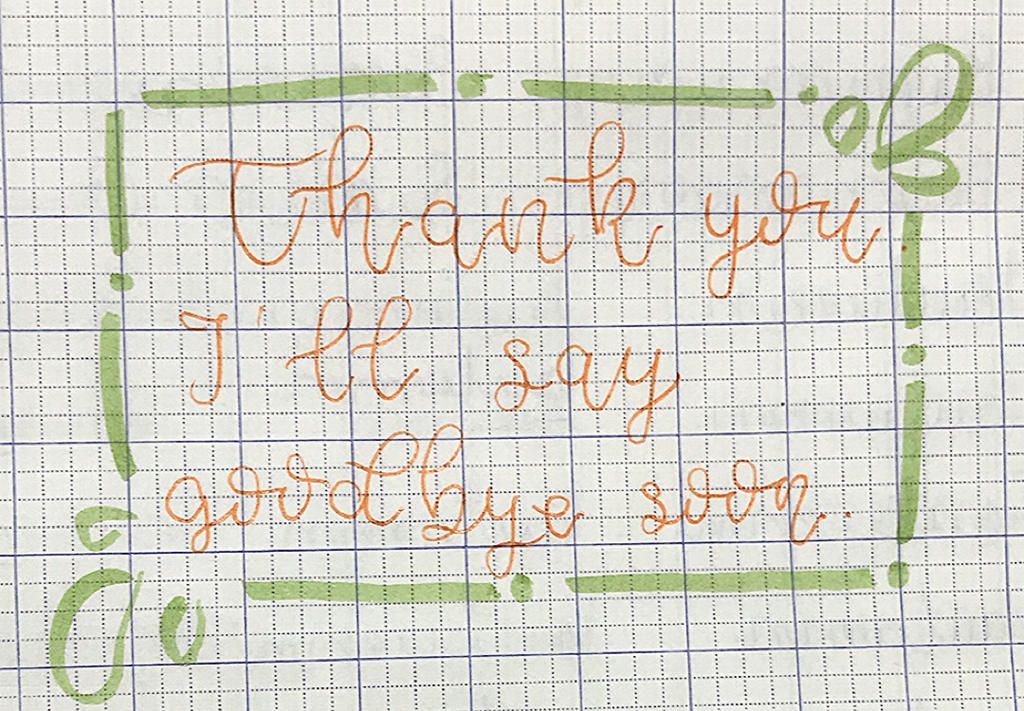 Thank you.
I'll say
goodbye soon..